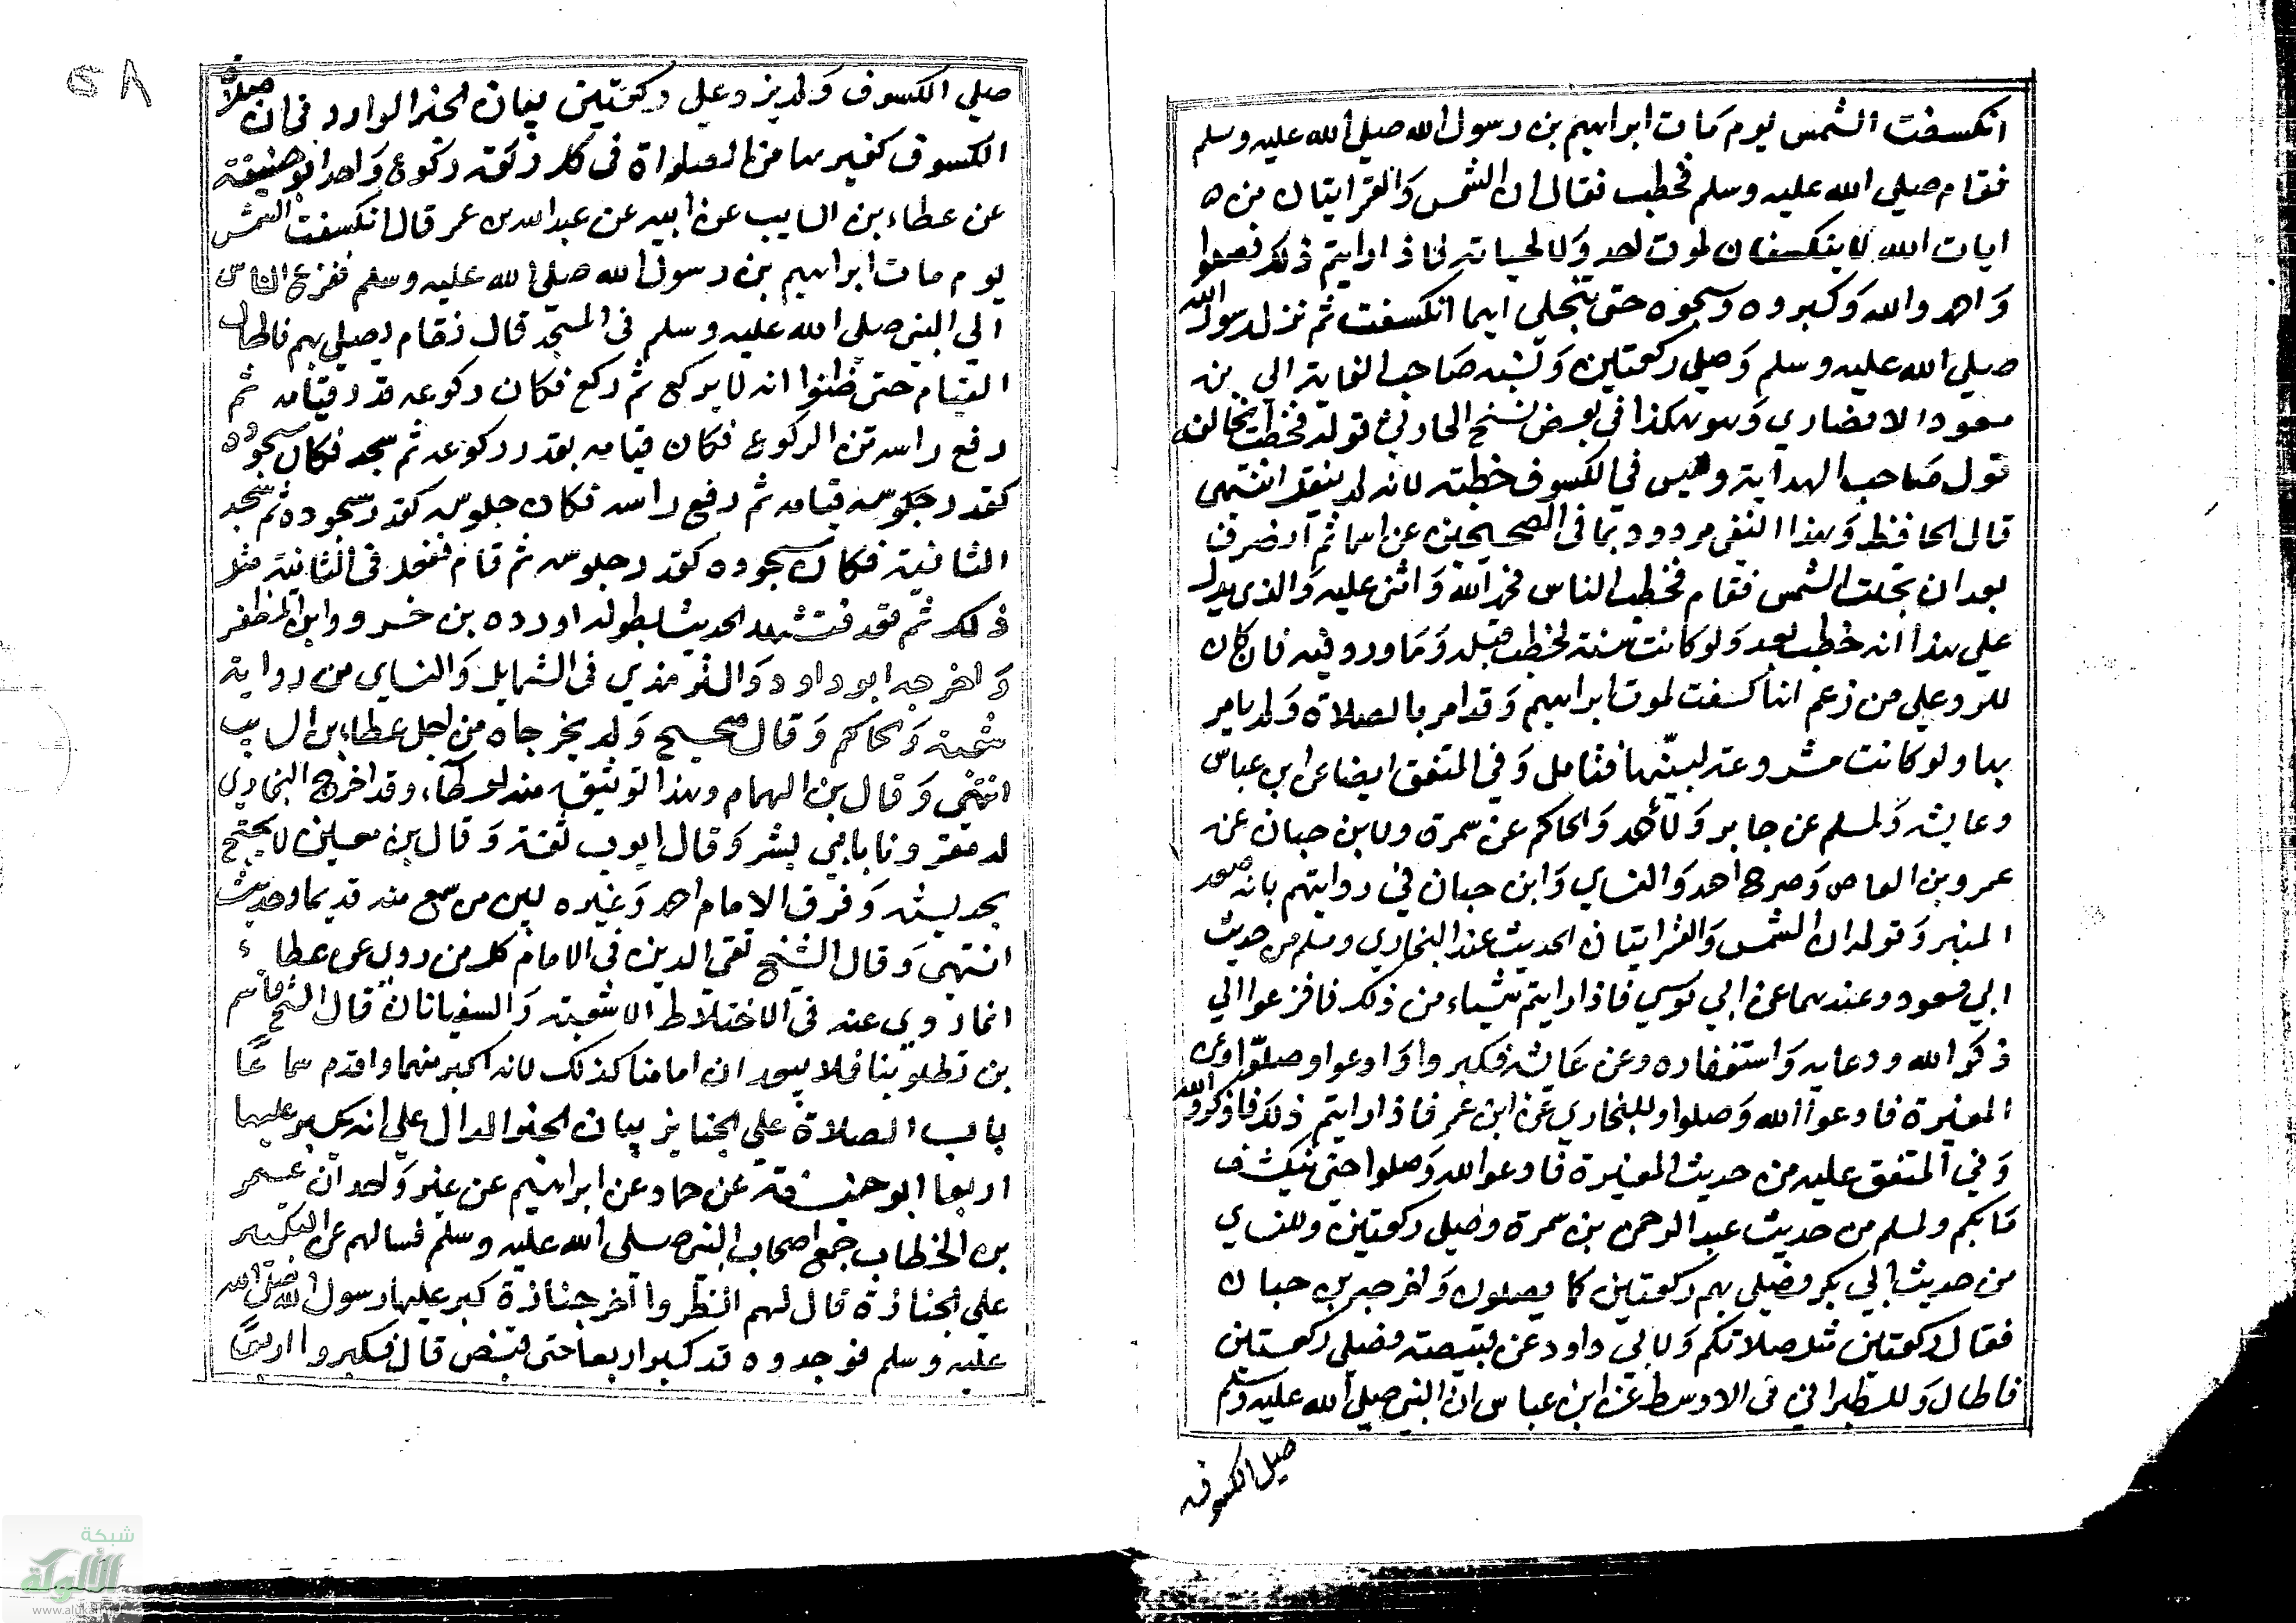 انكسفت الشمس يوم مات ابراهيم بن رسول الله صلي الله عليه وسلم
فقام صلي الله عليه وسلم فخطب فقال ان الشمس والقمر ايتان من
ايات الله لا ينكسفان لموت احد ولا لحياته فاذا رايتم ذلك فصلوا
واحمدوا الله وكبروه وسبحوه حتى ينجلي ايما انكسفت ثم نزل رسول الله
صلي الله عليه وسلم وصلي ركعتين ونسبه صاحب الغاية الي بن
مسعود الانصاري وهو هكذا في بعض نسخ الحاوي قوله فخطب يخالف
قول صاحب الهداية وليس في الكسوف خطبة لانه لم ينقل انتهى
قال الحافظ وهذا النفي مردود بما في الصحيحين عن اسما ثم انصرف
بعد ان تجلت الشمس فقام فخطب الناس فحمد الله واثنى عليه والذي يدل
علي هذا انه خطب بعد ولو كانت سنة لخطب قبله وما ورد فيه فان كان
للرد علي من زعم انها كسفت لموت ابراهيم وقد امر بالصلاة ولم يامر
بها ولو كانت مشروعة لبينها فتامل وفي المتفق ايضا عن ابن عباس
وعايشه ولمسلم عن جابر ولاحمد والحاكم عن سمرة ولابن حبان عن
عمرو بن العاص وصرح احمد والنساي وابن حبان في روايتهم بانه صعد
المنبر وقوله ان الشمس والقمر ايتان الحديث عند البخاري ومسلم من حديث
ابي مسعود وعندهما عن ابي موسي فاذا رايتم شيئاء من ذلك فافزعوا الي
ذكر الله ودعايه واستغفاره وعن عايشه فكبروا وادعوا وصلوا وعن
المغيرة فادعوا الله وصلوا وللبخاري عن ابن عمر فاذا رايتم ذلك فاذكروا الله
وفي المتفق عليه من حديث المغيرة فادعوا الله وصلوا حتى ينكشف
مابكم ولمسلم من حديث عبد الرحمن بن سمرة وصلي ركعتين وللنساي
من حديث ابي بكر فصلي بهم ركعتين كما يصلون واخرجه بن حبان
فقال ركعتين مثل صلاتكم ولابي داود عن قبيصة فصلي ركعتين
فاطال وللطبراني في الاوسط عن ابن عباس ان النبي صلي الله عليه وسلم
صلي الكسوف
٥٨
صلي الكسوف ولم يزد علي ركعتين بيان الخبر الوارد في ان صلاة
الكسوف كغيرها من الصلواة في كل ركعة ركوع واحد ابو حنيفة
عن عطاء بن السايب عن ابيه عن عبد الله بن عمر قال انكسفت الشمس
يوم مات ابراهيم بن رسول الله صلي الله عليه وسلم ففزع الناس
الي النبي صلي الله عليه وسلم في المسجد قال فقام يصلي بهم فاطال
القيام حتى ظنوا انه لا يركع ثم ركع فكان ركوعه قدر قيامه ثم
رفع راسه من الركوع فكان قيامه بقدر ركوعه ثم سجد فكان سجوده
كقدر قيامه ثم رفع راسه فكان جلوسه كقدر سجوده ثم سجد
الثانية فكان سجوده كقدر جلوسه ثم قام ففعل في الثانية مثل
ذلك ثم الحديث بطوله اورده بن خسرو وابن المظفر
واخرجه ابو داود والترمذي في الشمايل والنساي من رواية
شعبة والحاكم وقال صحيح ولم يخرجاه من اجل عطاء بن السايب
انتهى وقال بن الهمام وهذا توثيق منه لعطاء وقد اخرج البخاري
له مقرونا بابي بشر وقال ايوب ثقة وقال بن معين لا يحتج
بحديثه وفرق الامام احمد وغيره بين من سمع منه قديما وحديثا
انتهى وقال الشيخ تقي الدين في الامام كل من روى عن عطاء
انما روي عنه في الاختلاط الا شعبة والسفيانان قال الشيخ قاسم
بن قطلوبنا فلا يبعد ان امامنا كذلك لانه اكبر منهما واقدم سماعا
باب الصلاة علي الجنايز بيان الخبر الدال علي انه يكبر عليها
اربعا ابو حنيفة عن حماد عن ابراهيم عن غير واحد ان عمر
بن الخطاب جمع اصحاب النبي صلي الله عليه وسلم فسالهم عن التكبير
علي الجنازة قال لهم انظروا آخر جنازة كبر عليها رسول الله صلي الله
عليه وسلم فوجدوه قد كبر اربعا حتى قبض قال فكبروا اربعا
شبكة
الألوكة
www.alukah.net